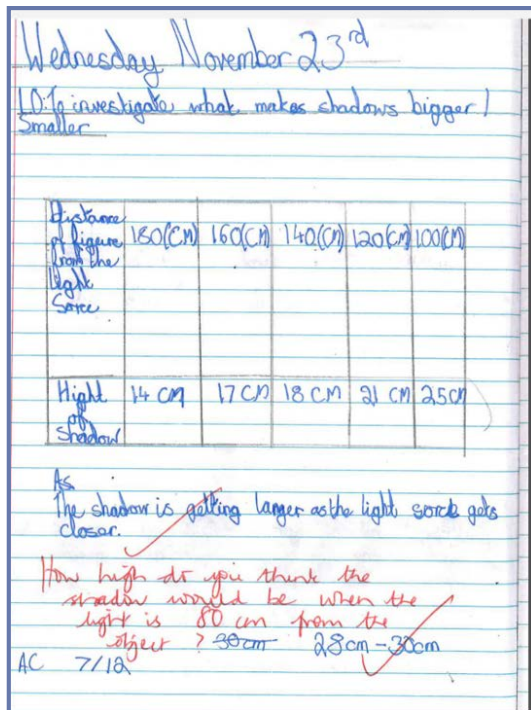 Wednesday November 23rd
L.O: To investigate what makes shadows bigger /
Smaller
Distance
of figure
from the
light
Sorce
180(CM) 160(CM) 140(CM) 120(CM) 100(CM)
Hight
of
shadow
14 CM 17 CM 18 CM 21 CM 25CM
As
The shadow is getting larger as the light sorce gets
closer.
How high do you think the
shadow would be when the
light is 80 cm from the
object ? 30cm 28cm-30cm
AC 7/12